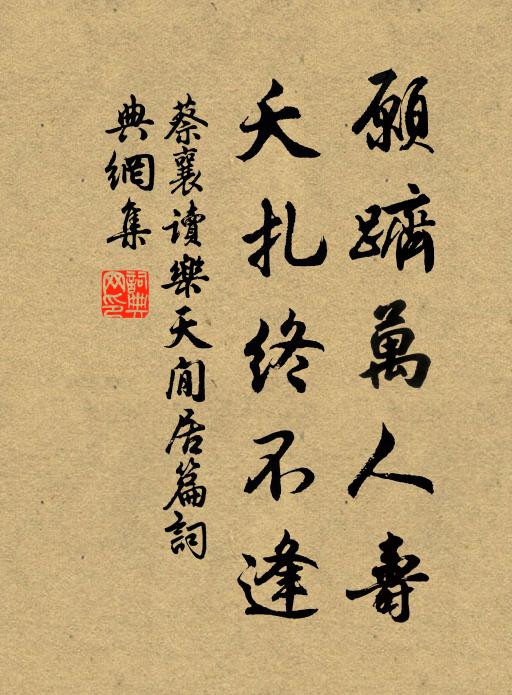 願躋萬人壽
夭扎終不逢
蔡襄讀樂天閒居篇詞
典網集
詞典網印